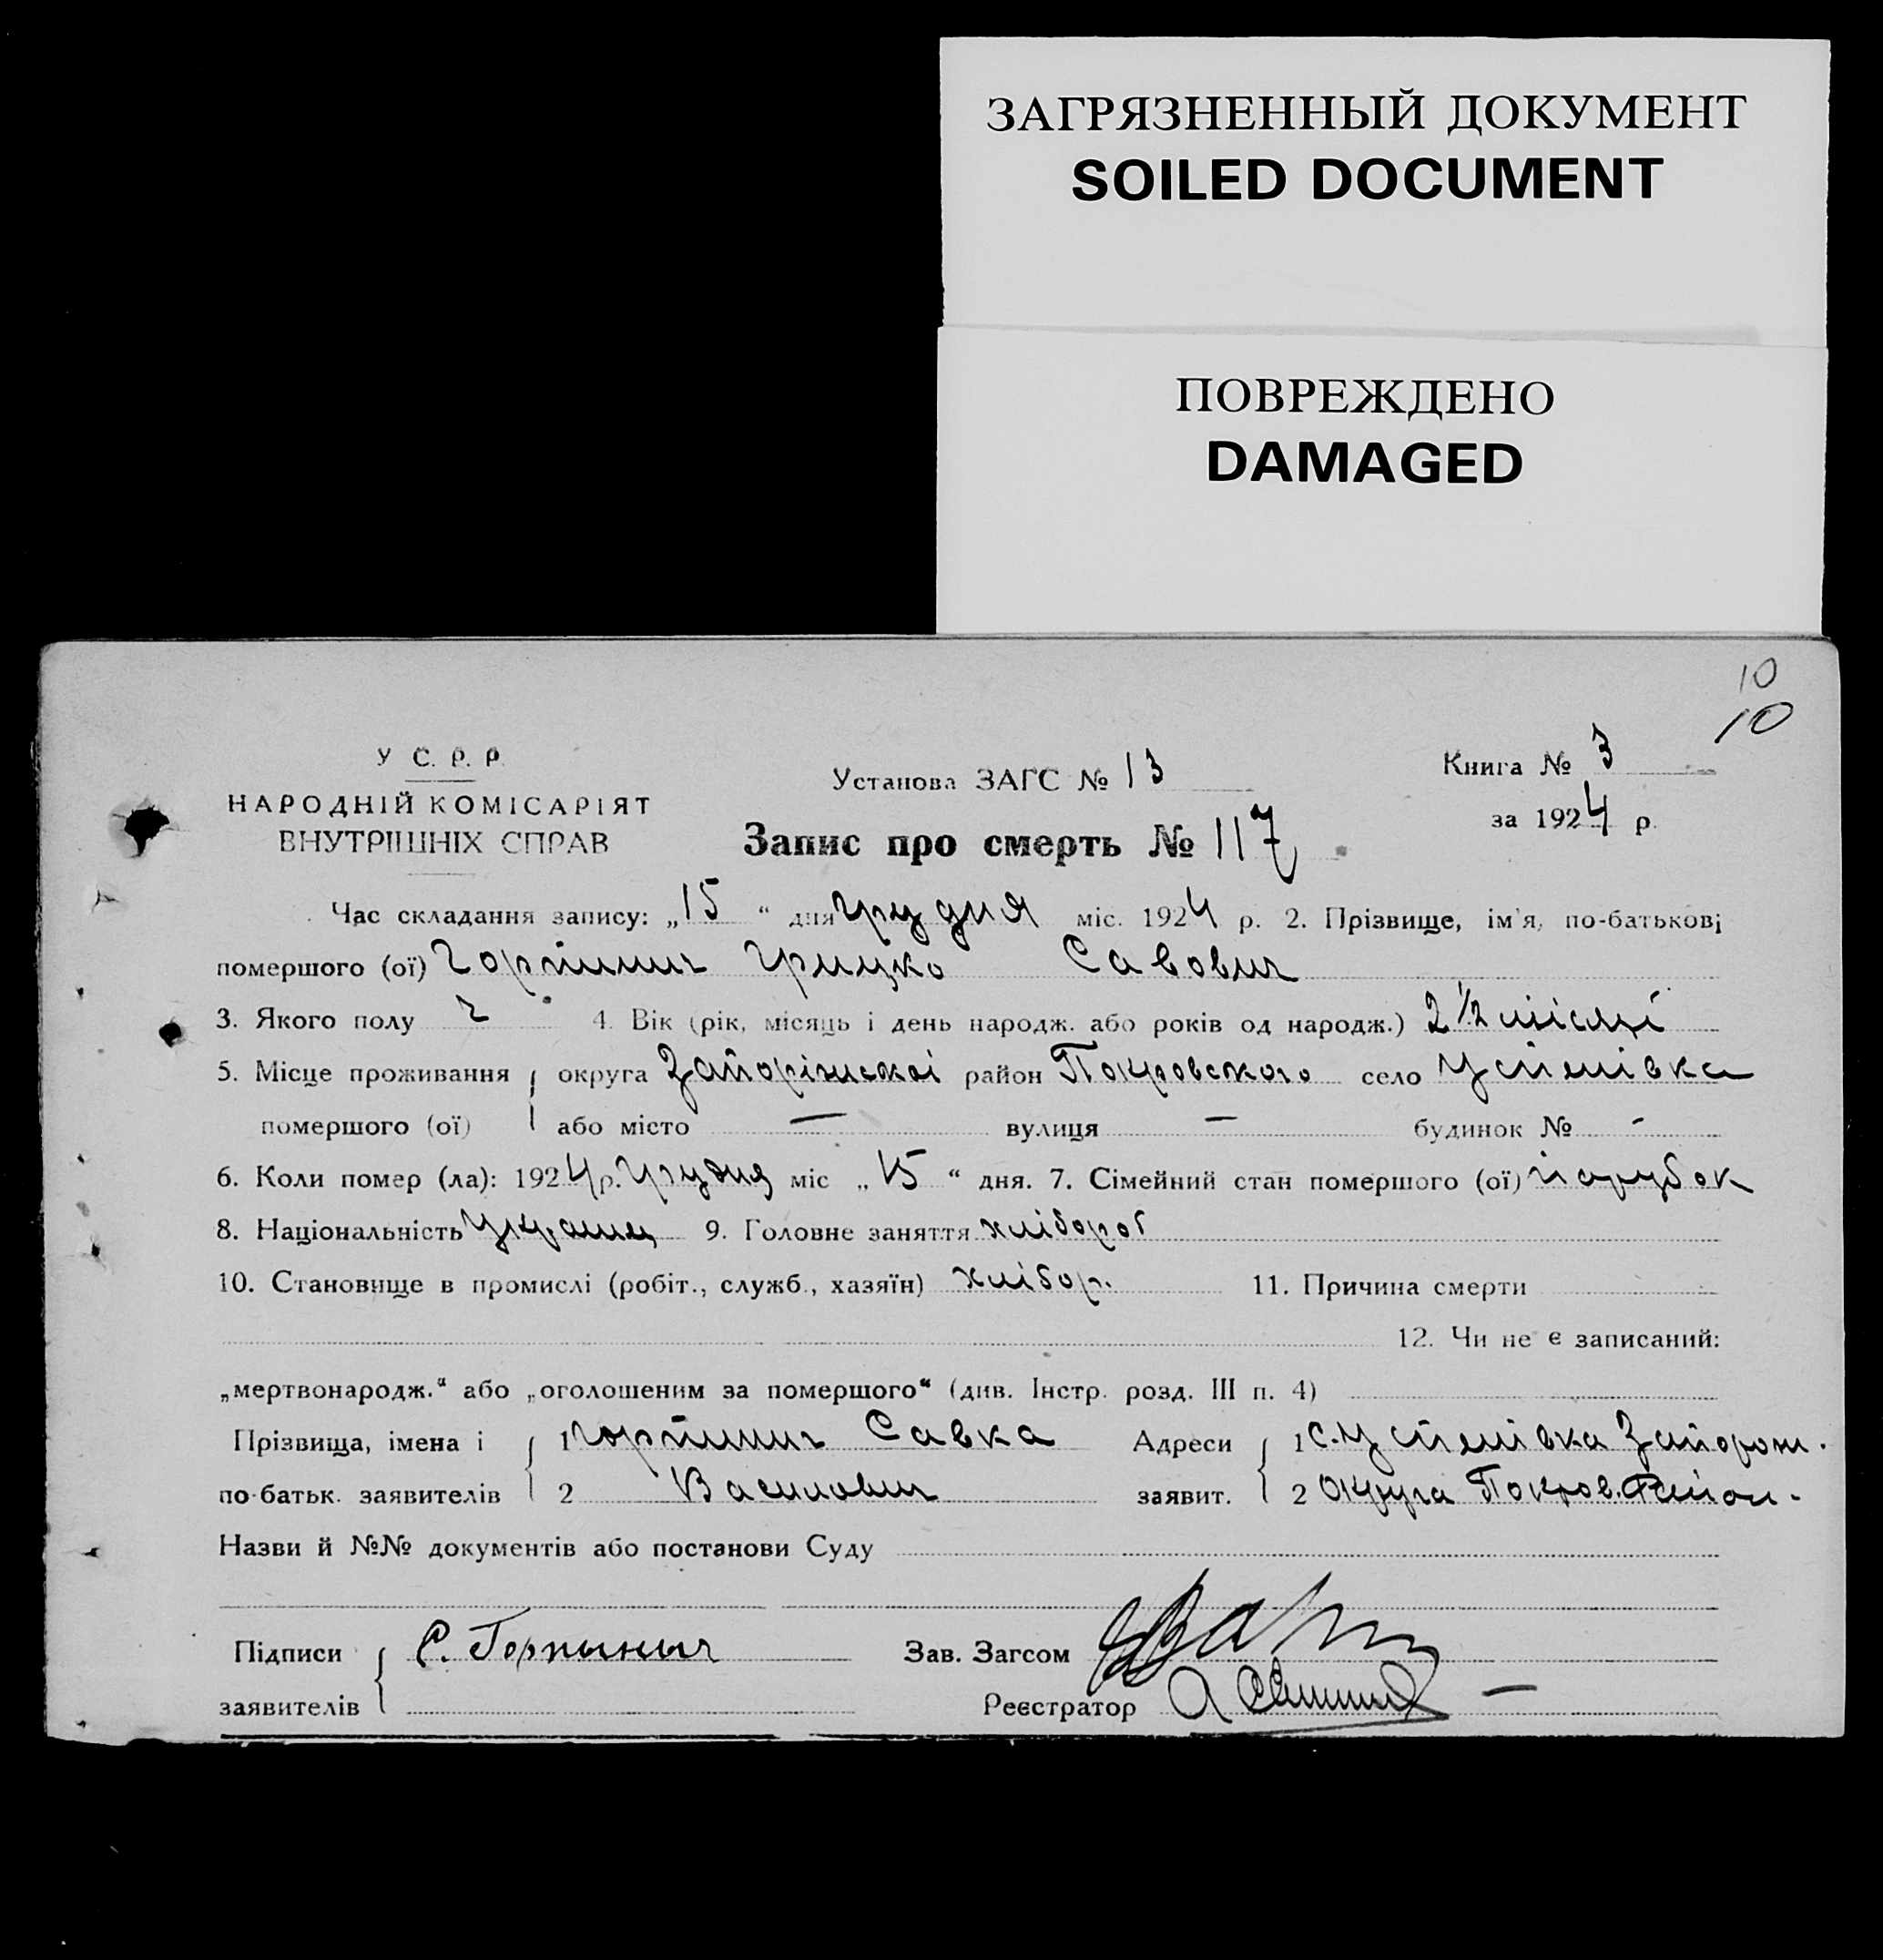 ЗАГРЯЗНЕННЫЙ ДОКУМЕНТ
SOILED DOCUMENT
ПОВРЕЖДЕНО
DAMAGED
10
10
У С. Р. Р.
НАРОДНІЙ КОМІСАРІЯТ
ВНУТРІШНІХ СПРАВ
Установа ЗАГС № 13
Книга № 3
за 1924 р.
Запис про смерть № 117
Час складання запису: „15“ дня грудня міс. 1924 р. 2. Прізвище, ім'я, по-батькові
помершого (ої) Горпинич Грицко Савович
3. Якого полу ч 4. Вік (рік, місяць і день народж. або років од народж.) 2 1/2 місяці
5. Місце проживання округа Запоріжскої район Покровского село Успенівка
помершого (ої) або місто — вулиця — будинок № -
6. Коли помер (ла): 1924 р. Грудня міс „15“ дня. 7. Сімейний стан помершого (ої) парубок
8. Національність Украинец 9. Головне заняття хлібороб
10. Становище в промислі (робіт., служб., хазяїн) хлібор. 11. Причина смерти
12. Чи не є записаний:
„мертвонародж.“ або „оголошеним за помершого“ (див. Інстр. розд. III п. 4)
Прізвища, імена і 1 Горпинич Савка Адреси 1 с. Успенівка Запорож.
по-батьк. заявителів 2 Василович заявит. 2 Округа Покров. Район.
Назви й №№ документів або постанови Суду
Підписи С. Горпынычь Зав. Загсом
заявителів Реєстратор